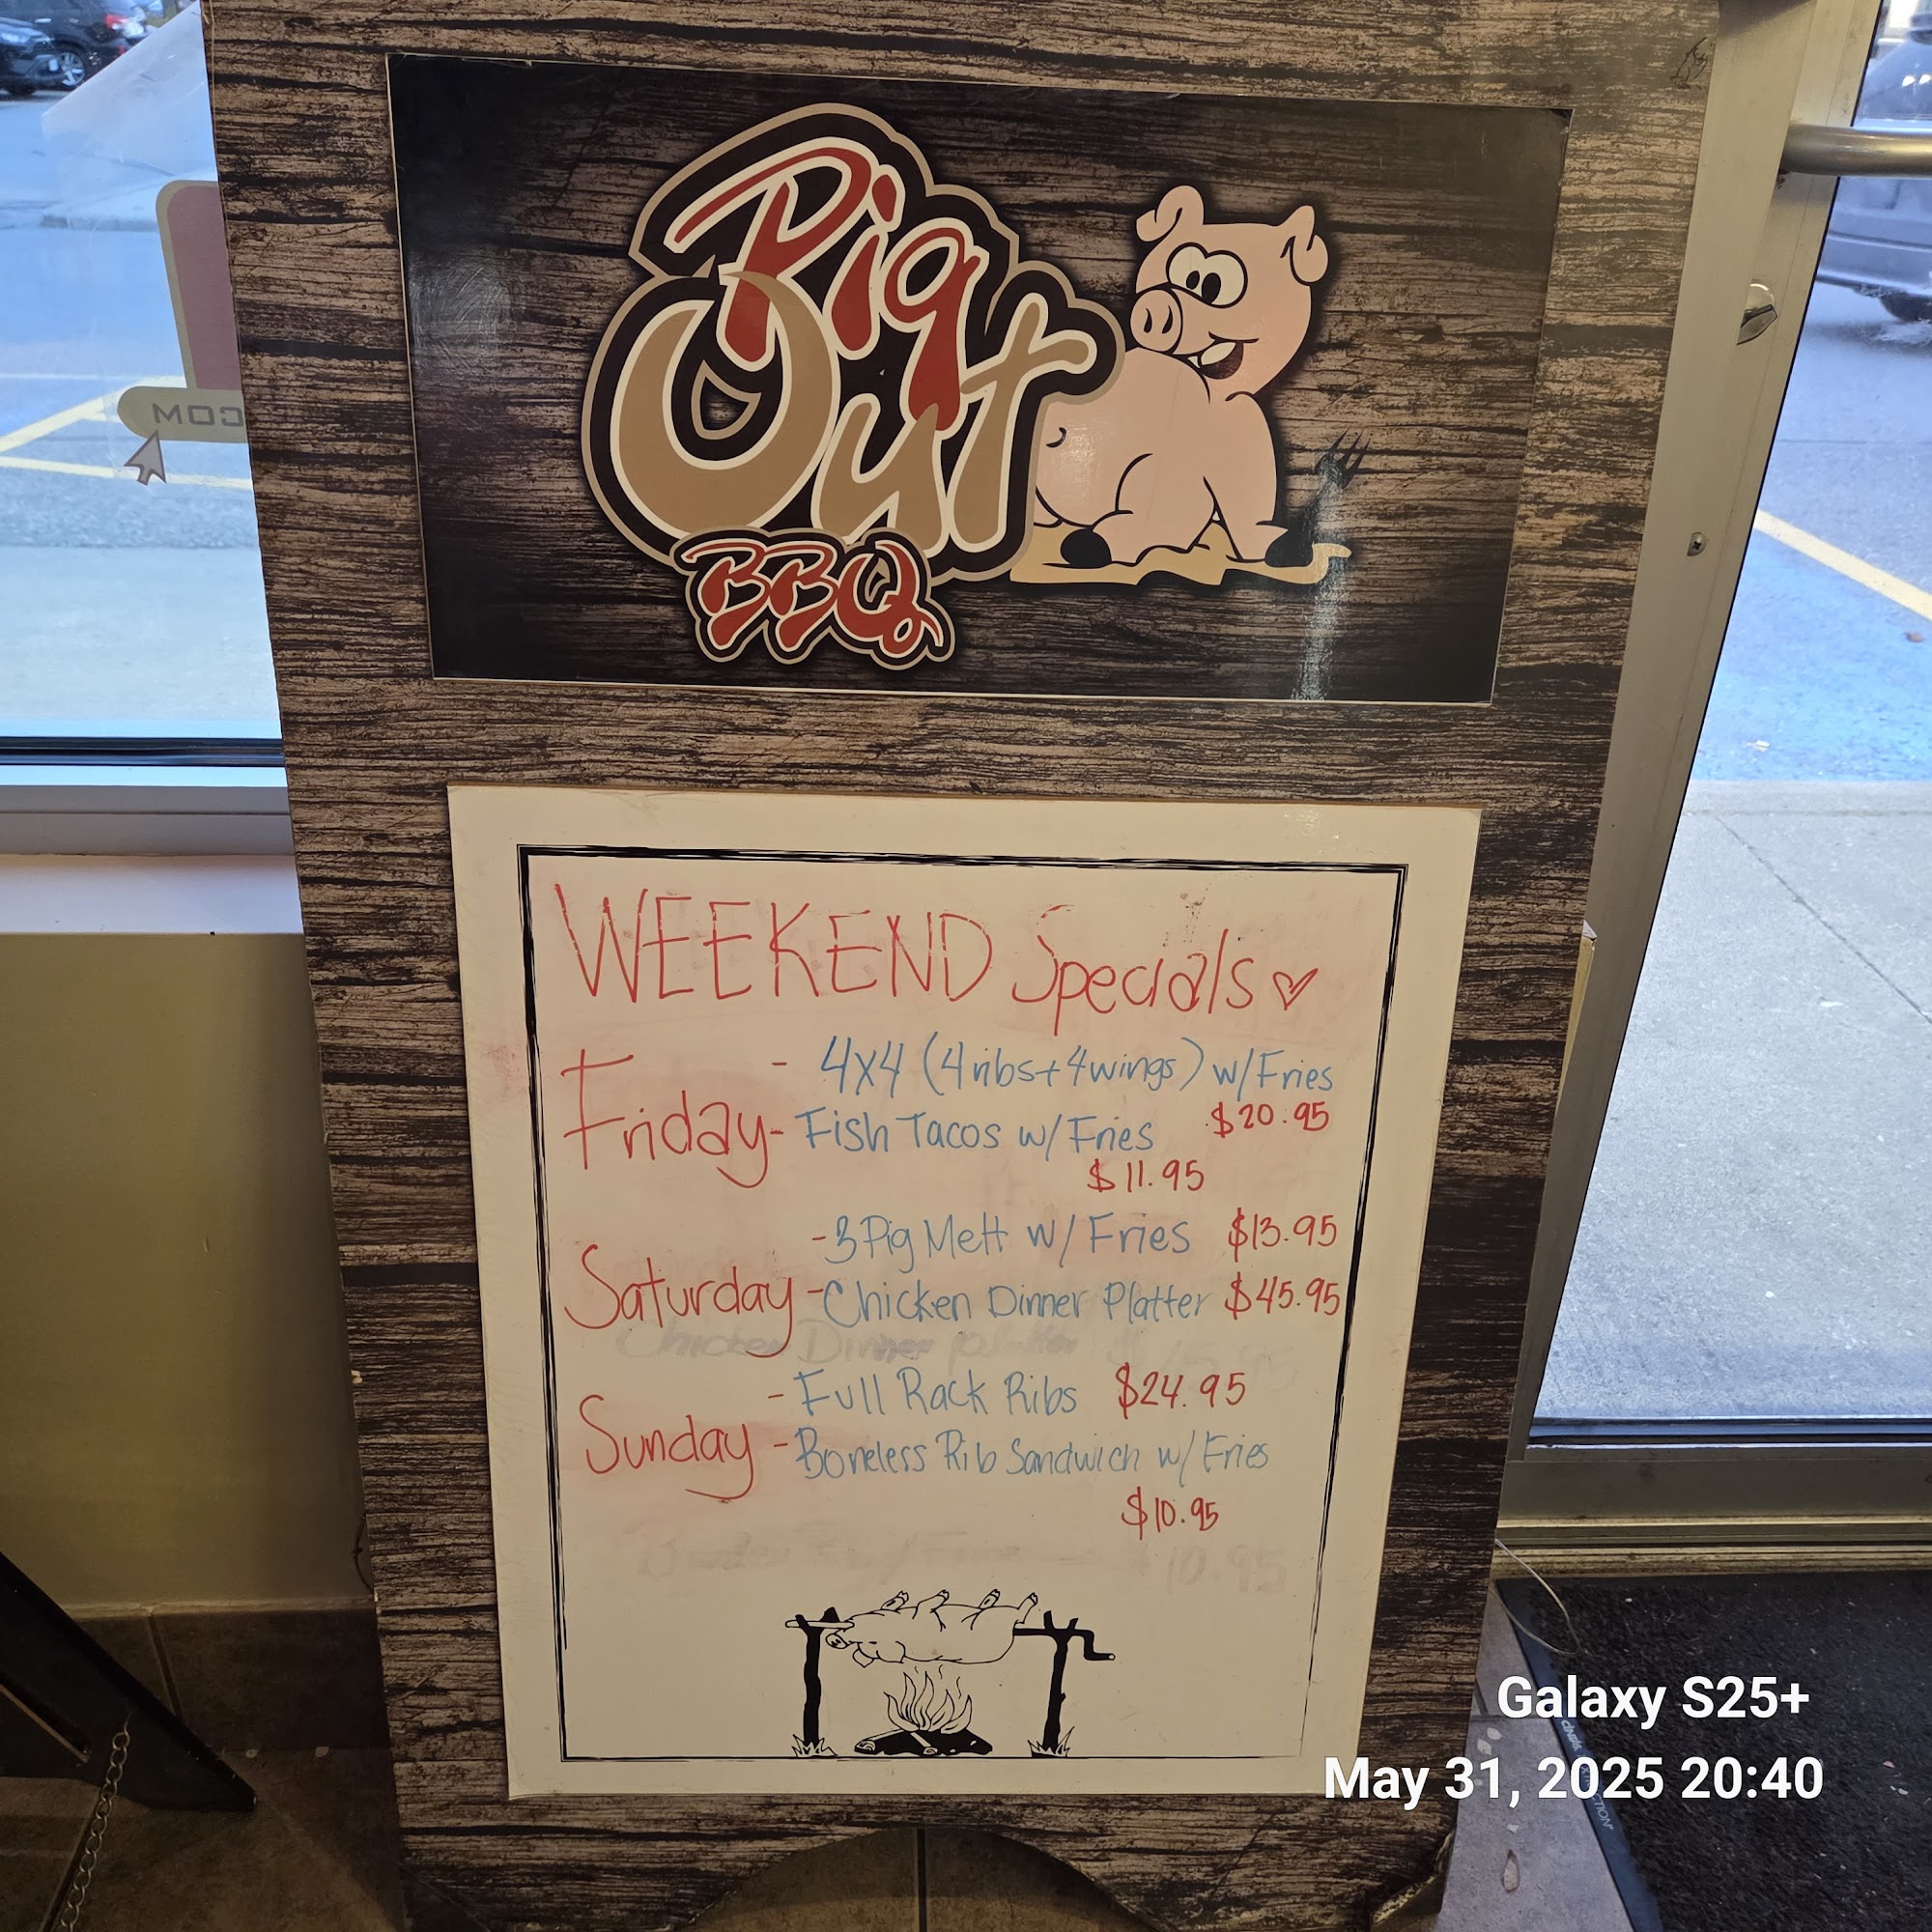 Pig
Out
BBQ
.COM
WEEKEND Specials
- 4x4 (4 ribs + 4 wings) w/Fries
$20.95
Friday - Fish Tacos w/Fries
$11.95
- 3 Pig Melt w/ Fries $13.95
Saturday - Chicken Dinner Platter $45.95
Chicken Dinner
- Full Rack Ribs $24.95
Sunday - Boneless Rib Sandwich w/ Fries
$10.95
$10.95
Galaxy S25+
May 31, 2025 20:40